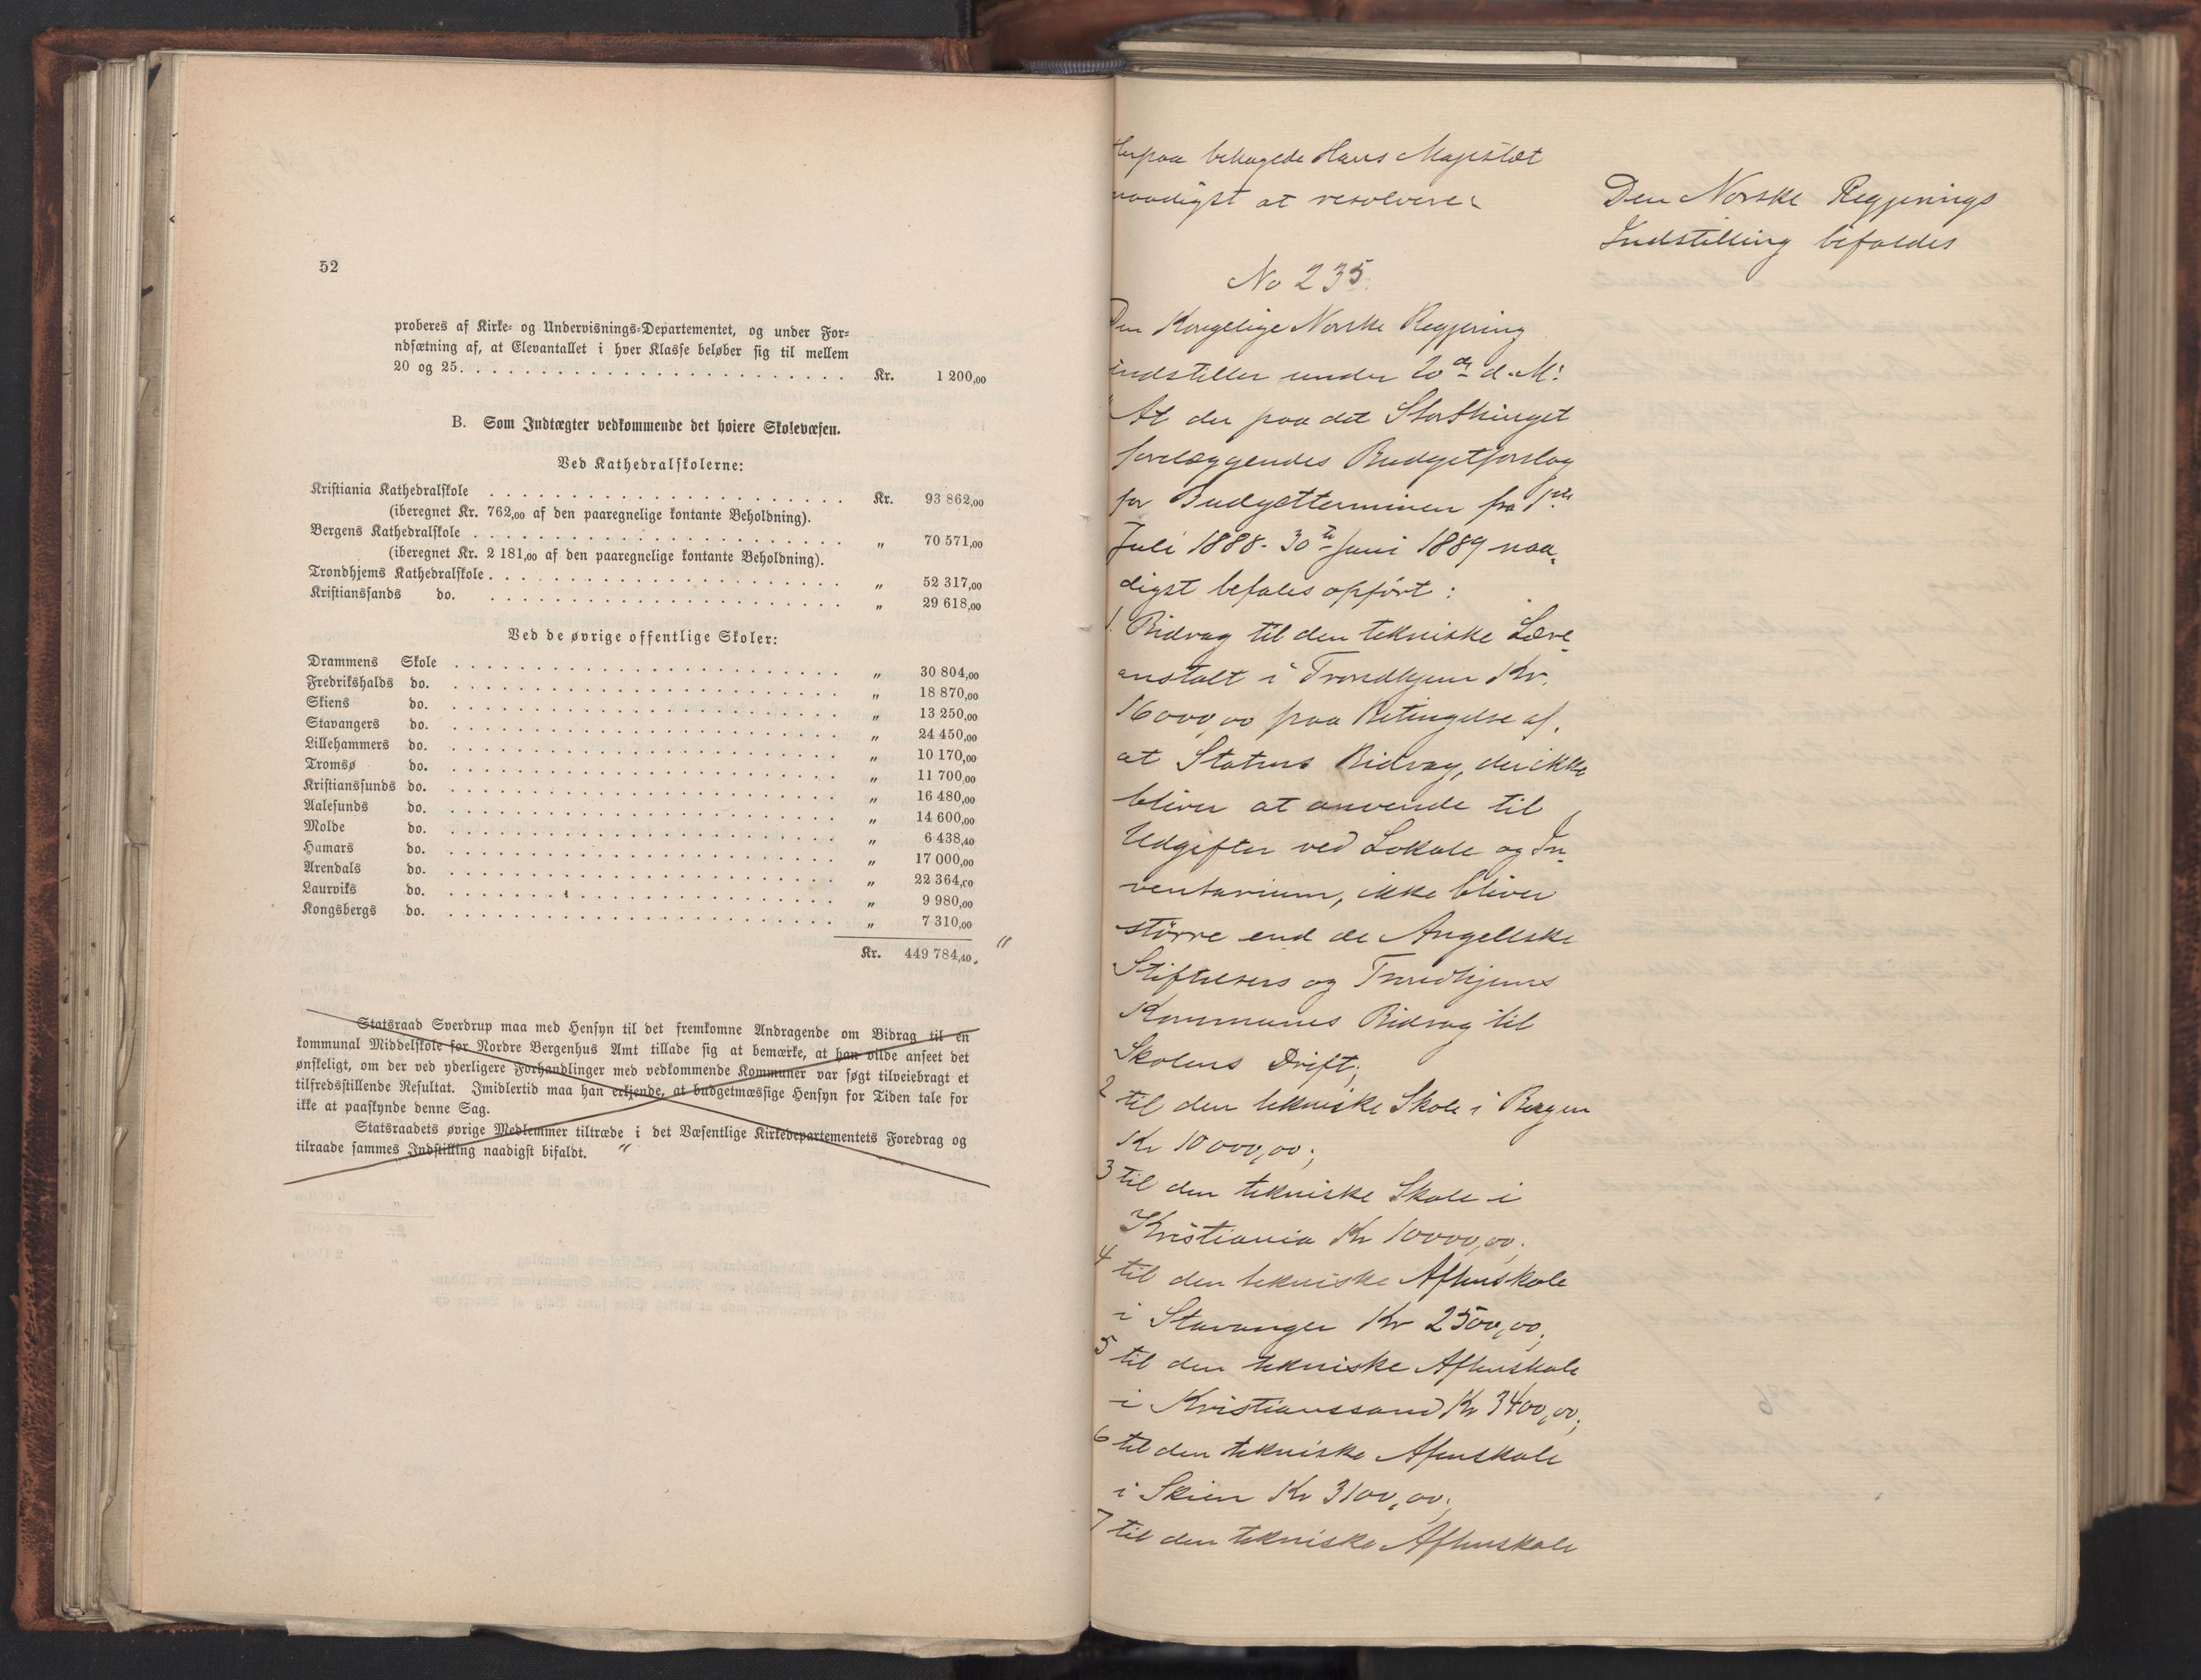 52
proberes af Kirke- og Undervisnings-Departementet, og under For-
ndsætning af, at Elevantallet i hver Klasse beløber sig til mellem
20 og 25. . . . . . . . . . . . . . . . . . . . . . . . Kr. 1 200,00
B. Som Indtægter vedkommende det høiere Skolevæsen.
Ved Kathedralskolerne:
Kristiania Kathedralskole . . . . . . . . . . . . . . . . . . . . . Kr. 93 862,00
(iberegnet Kr. 762,00 af den paaregnelige kontante Beholdning).
Bergens Kathedralskole . . . . . . . . . . . . . . . . . . . . . . „ 70 571,00
(iberegnet Kr. 2 181,00 af den paaregnelige kontante Beholdning).
Trondhjems Kathedralskole . . . . . . . . . . . . . . . . . . . . . „ 52 317,00
Kristianssands do. . . . . . . . . . . . . . . . . . . . . . „ 29 618,00
Ved de øvrige offentlige Skoler:
Drammens Skole . . . . . . . . . . . . . . . . . . . . . . . „ 30 804,00
Fredrikshalds do. . . . . . . . . . . . . . . . . . . . . . . . „ 18 870,00
Skiens do. . . . . . . . . . . . . . . . . . . . . . . . „ 13 250,00
Stavangers do. . . . . . . . . . . . . . . . . . . . . . . . „ 24 450,00
Lillehammers do. . . . . . . . . . . . . . . . . . . . . . . . „ 10 170,00
Tromsø do. . . . . . . . . . . . . . . . . . . . . . . . „ 11 700,00
Kristianssunds do. . . . . . . . . . . . . . . . . . . . . . . . „ 16 480,00
Aalesunds do. . . . . . . . . . . . . . . . . . . . . . . . „ 14 600,00
Molde do. . . . . . . . . . . . . . . . . . . . . . . . „ 6 438,40
Hamars do. . . . . . . . . . . . . . . . . . . . . . . . „ 17 000,00
Arendals do. . . . . . . . . . . . . . . . . . . . . . . . „ 22 364,00
Laurviks do. . . . . . . . . . . . . . . . . . . . . . . . „ 9 980,00
Kongsbergs do. . . . . . . . . . . . . . . . . . . . . . . . „ 7 310,00
Kr. 449 784,40. "
Statsraad Sverdrup maa med Hensyn til det fremkomne Andragende om Bidrag til en
kommunal Middelskole for Nordre Bergenhus Amt tillade sig at bemærke, at han vilde anseet det
ønskeligt, om der ved yderligere Forhandlinger med vedkommende Kommuner var søgt tilveiebragt et
tilfredsstillende Resultat. Imidlertid maa han erkjende, at budgetmæssige Hensyn for Tiden tale for
ikke at paaskynde denne Sag.
Statsraadets øvrige Medlemmer tiltræde i det Væsentlige Kirkedepartementets Foredrag og
tilraade sammes Indstilling naadigst bifaldt. "
Herpaa behagede Hans Majestæt
naadigst at resolvere:
Den Norske Regjerings
Indstilling bifaldes
No 235.
Den Kongelige Norske Regjering
indstiller under 20de d. M:
"At der paa det Storthinget
forelæggendes Budgetforslag
for Budgetterminen fra 1ste
Juli 1888 - 30te Juni 1889 naa-
digst befales opført:
1. Bidrag til den tekniske Lære-
anstalt i Trondhjem Kr.
16000,00 paa Betingelse af,
at Statens Bidrag, der ikke
bliver at anvende til
Udgifter ved Lokale og In-
ventarium, ikke bliver
større end de Angellske
Stiftelsers og Trondhjems
Kommunes Bidrag til
Skolens Drift;
2 til den tekniske Skole i Bergen
Kr 10000,00;
3 til den tekniske Skole i
Kristiania Kr 10000,00;
4 til den tekniske Aftenskole
i Stavanger Kr 2500,00;
5 til den tekniske Aftenskole
i Kristianssand Kr 3400,00;
6 til den tekniske Afenskole
i Skien Kr 3100,00;
7 til den tekniske Aftenskole